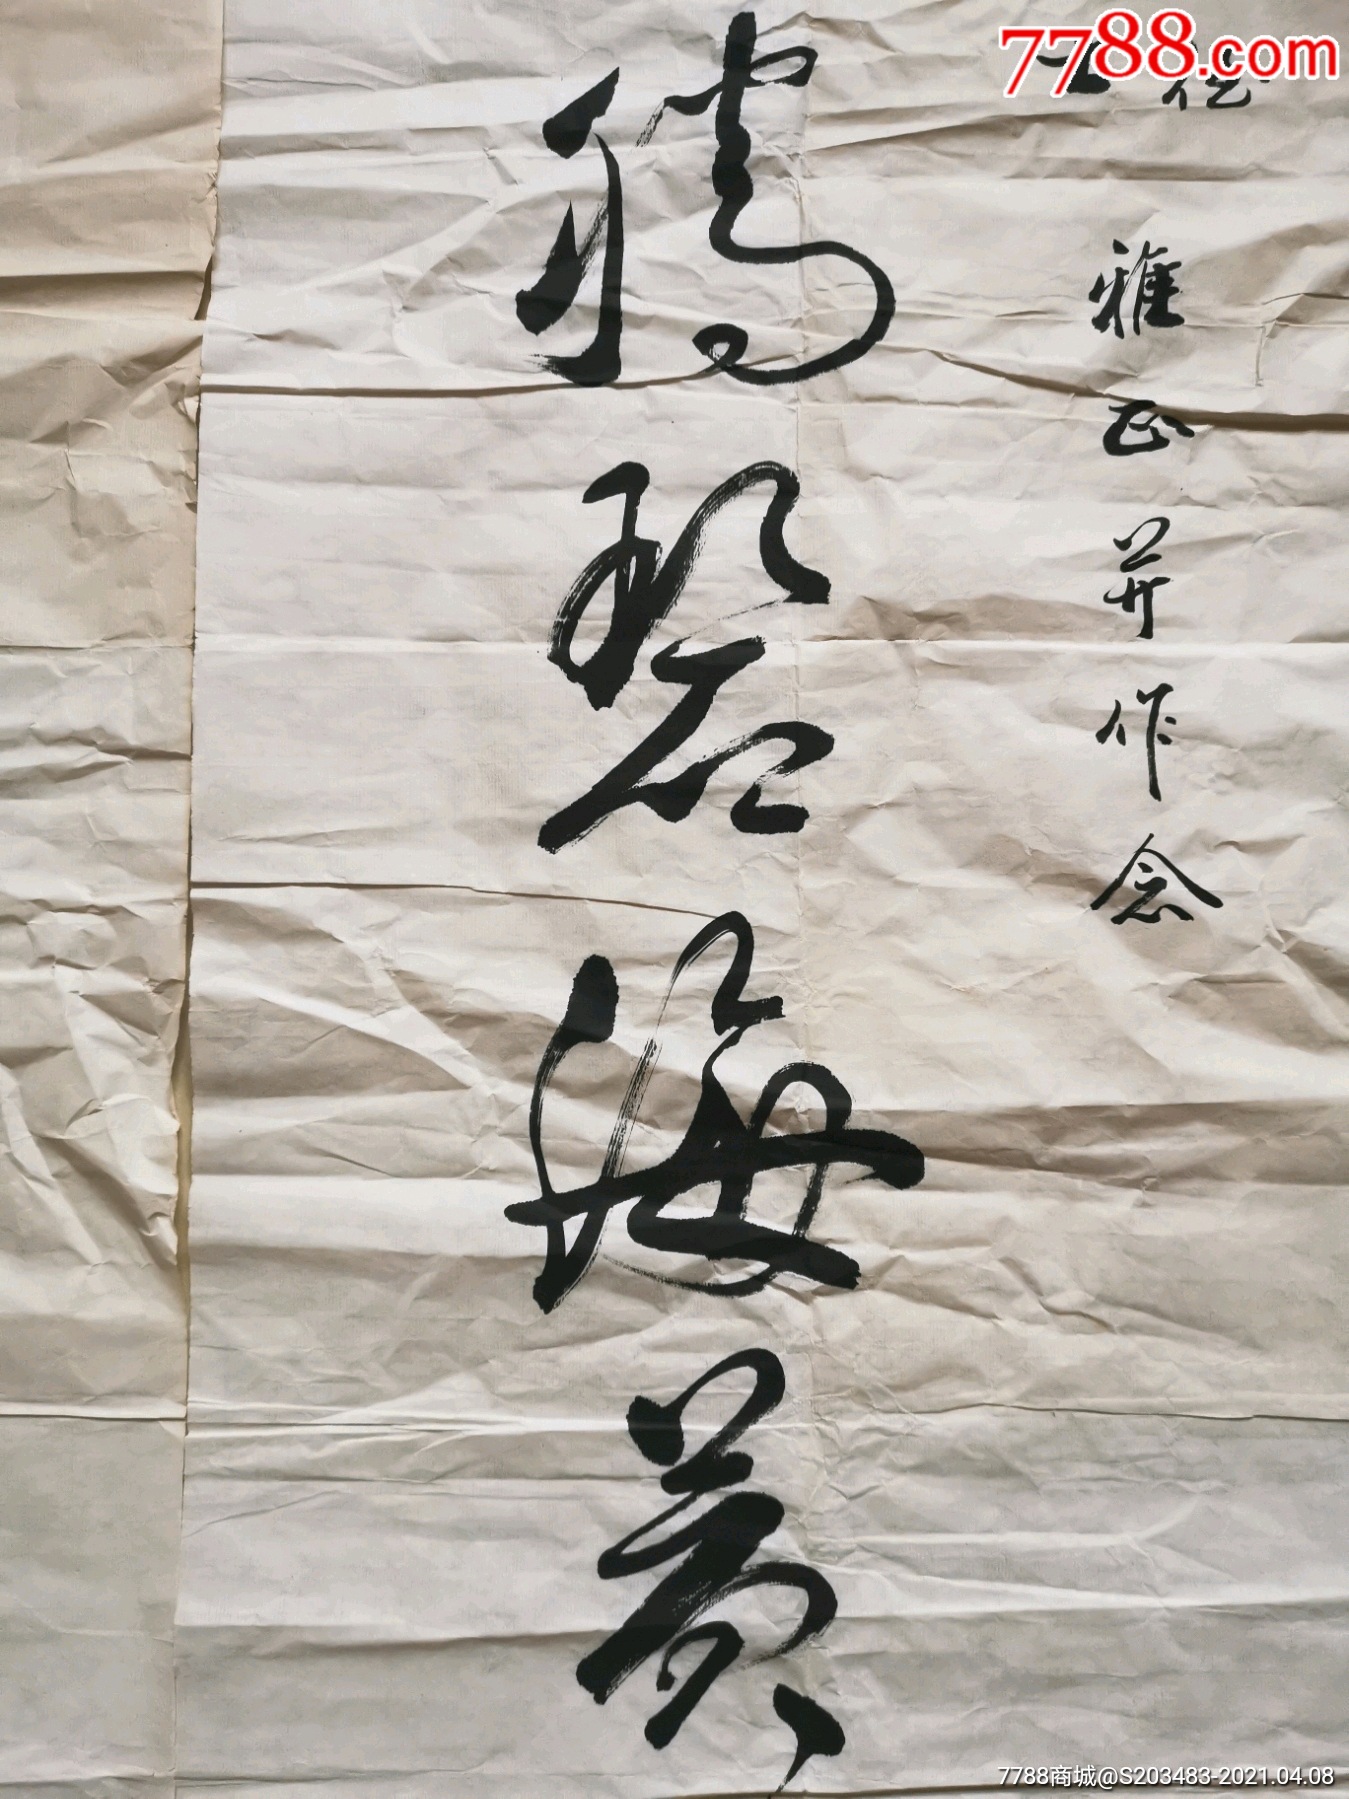 7788.com
雅正并作念
碧海黄
7788商城@S203483-2021.04.08